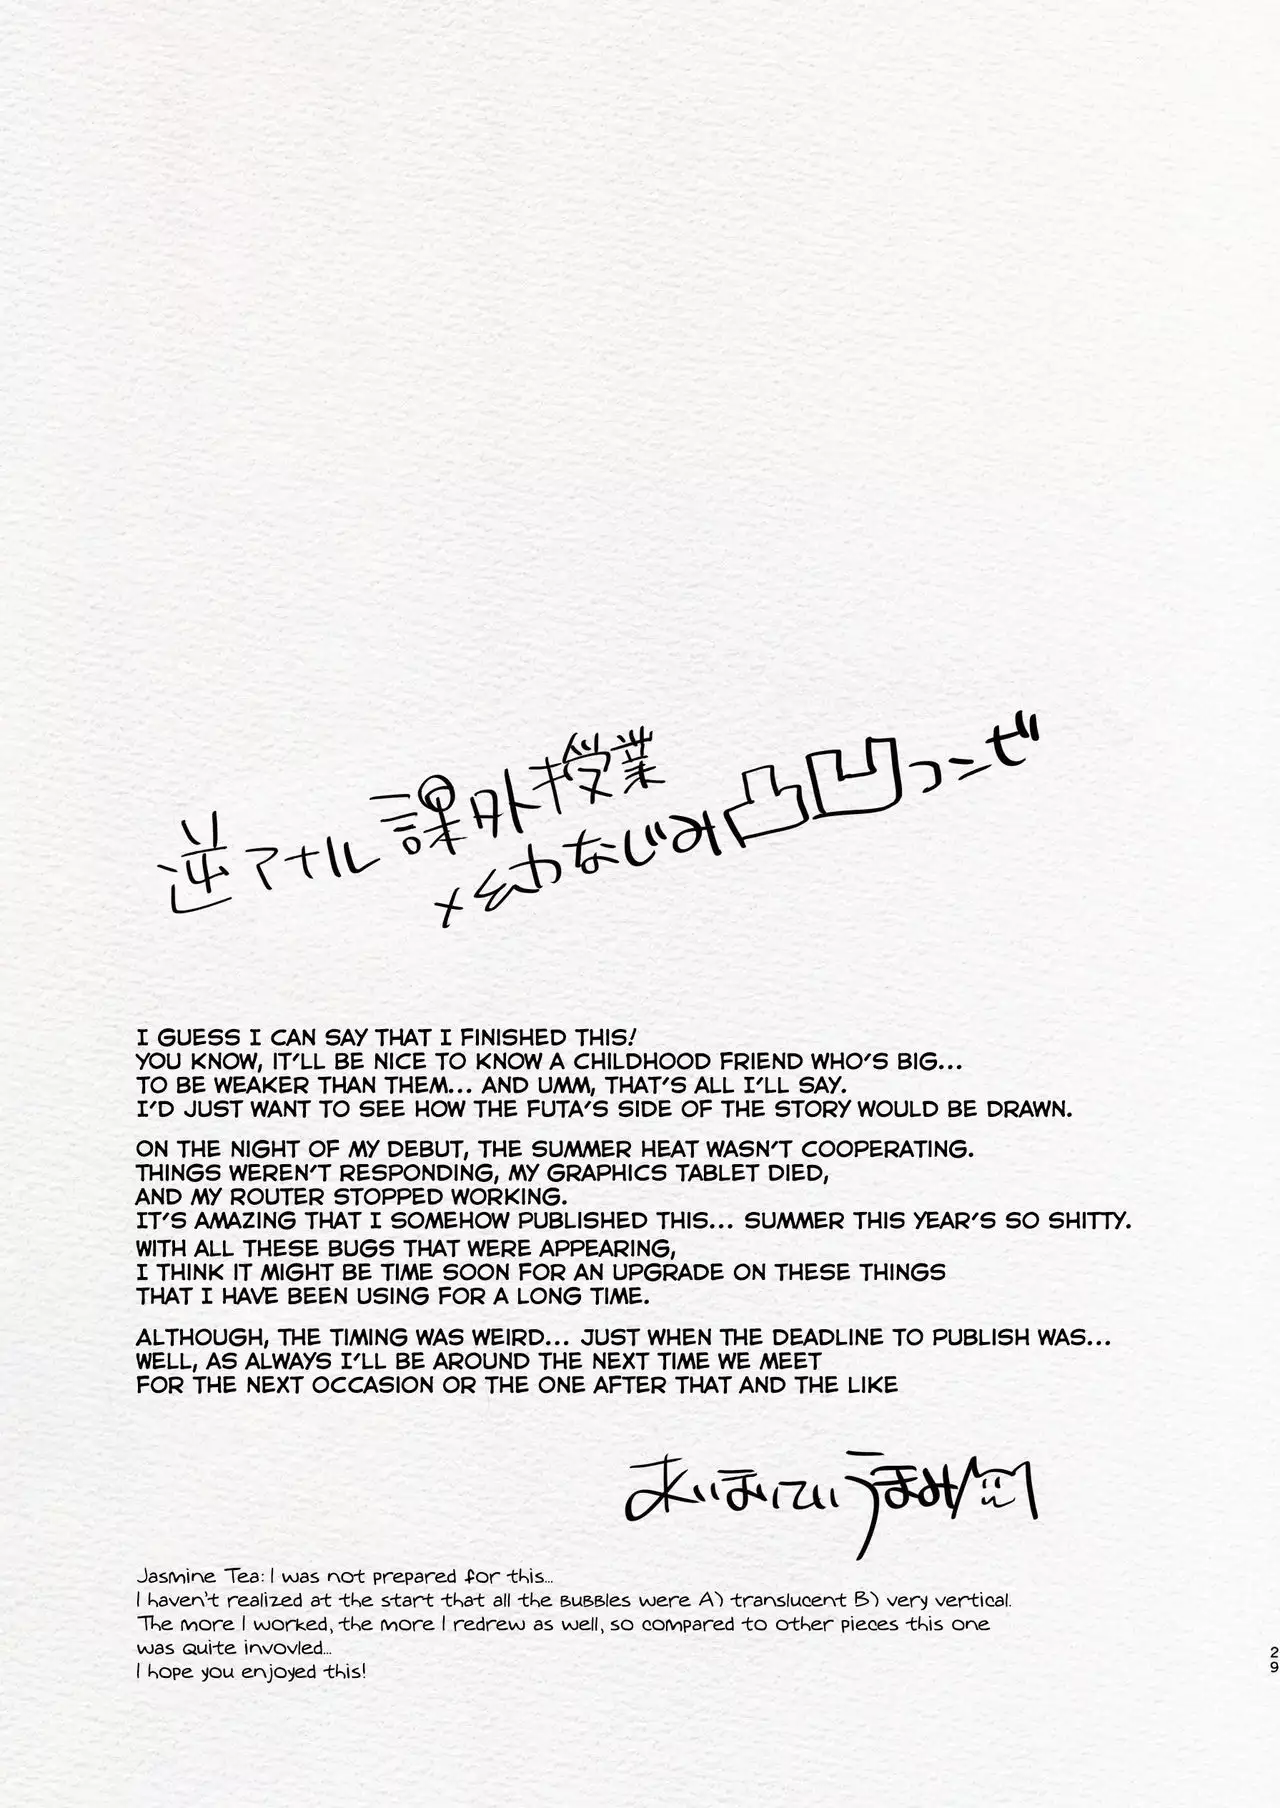 逆アナル課外授業
×幼なじみ凸凹コンビ
I GUESS I CAN SAY THAT I FINISHED THIS!
YOU KNOW, IT'LL BE NICE TO KNOW A CHILDHOOD FRIEND WHO'S BIG...
TO BE WEAKER THAN THEM... AND UMM, THAT'S ALL I'LL SAY.
I'D JUST WANT TO SEE HOW THE FUTA'S SIDE OF THE STORY WOULD BE DRAWN.
ON THE NIGHT OF MY DEBUT, THE SUMMER HEAT WASN'T COOPERATING.
THINGS WEREN'T RESPONDING, MY GRAPHICS TABLET DIED,
AND MY ROUTER STOPPED WORKING.
IT'S AMAZING THAT I SOMEHOW PUBLISHED THIS... SUMMER THIS YEAR'S SO SHITTY.
WITH ALL THESE BUGS THAT WERE APPEARING,
I THINK IT MIGHT BE TIME SOON FOR AN UPGRADE ON THESE THINGS
THAT I HAVE BEEN USING FOR A LONG TIME.
ALTHOUGH, THE TIMING WAS WEIRD... JUST WHEN THE DEADLINE TO PUBLISH WAS...
WELL, AS ALWAYS I'LL BE AROUND THE NEXT TIME WE MEET
FOR THE NEXT OCCASION OR THE ONE AFTER THAT AND THE LIKE
うまみ
Jasmine Tea: I was not prepared for this...
I haven't realized at the start that all the bubbles were A) translucent B) very vertical.
The more I worked, the more I redrew as well, so compared to other pieces this one
was quite invovled...
I hope you enjoyed this!
29